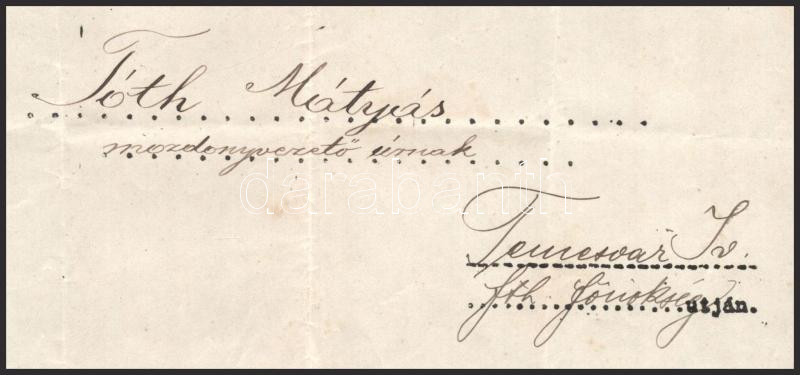 Tóth Mátyás
mozdonyvezető úrnak
Temesvár Iv.
fth. főnökség
utján.
darabanth